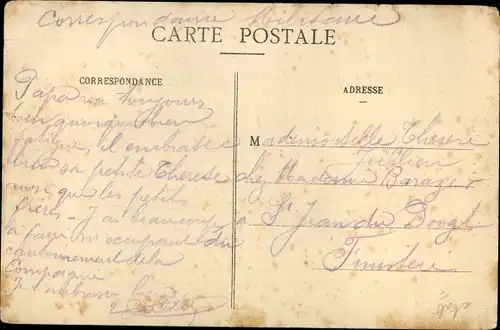 Correspondance Militaire
CARTE POSTALE
CORRESPONDANCE
ADRESSE
Papa va toujours
bien quoique bien
fatigué, il embrasse
bien sa petite Therese
ainsi que les petits
frères - J'ai beaucoup
à faire, m'occupant du
cantonnement de la
Compagnie
Je t'embrasse
Mademoiselle Therese
Jullien
chez Madame Barazer
à St Jean du Doigt
Finistère